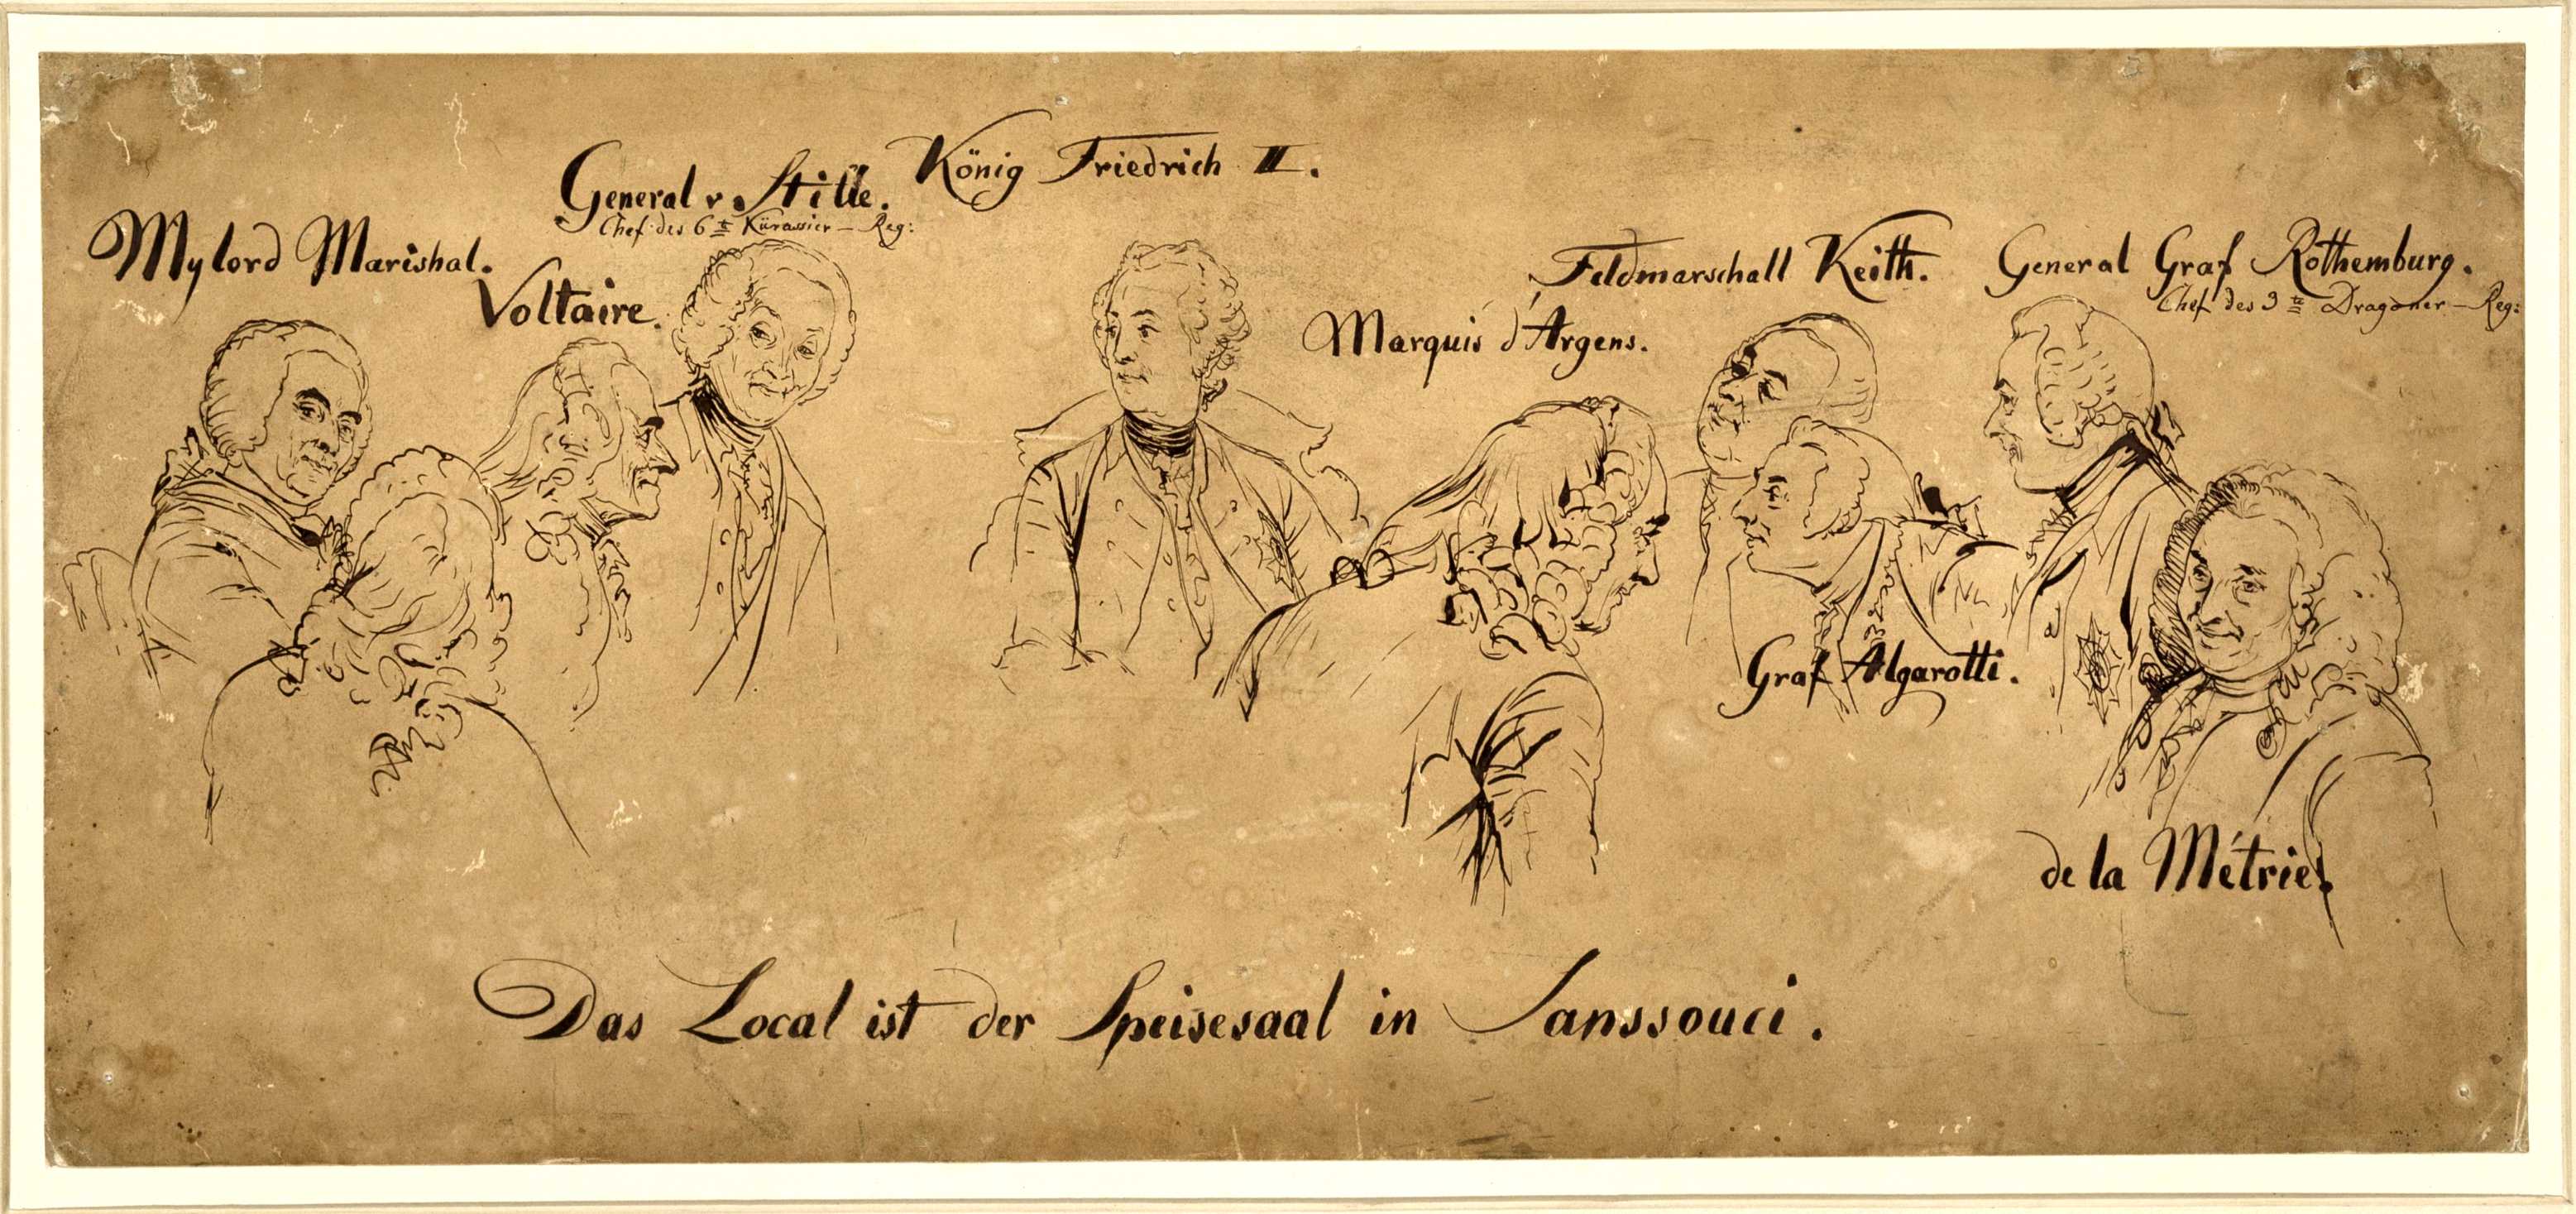 König Friedrich II.
General v. Stille.
Chef des 6te Kürassier-Reg:
Mylord Marishal.
Voltaire.
Feldmarschall Keith.
General Graf Rothemburg.
Chef des 3te Dragoner-Reg:
Marquis d'Argens.
Graf Algarotti.
de la Métrie.
Das Local ist der Speisesaal in Sanssouci.